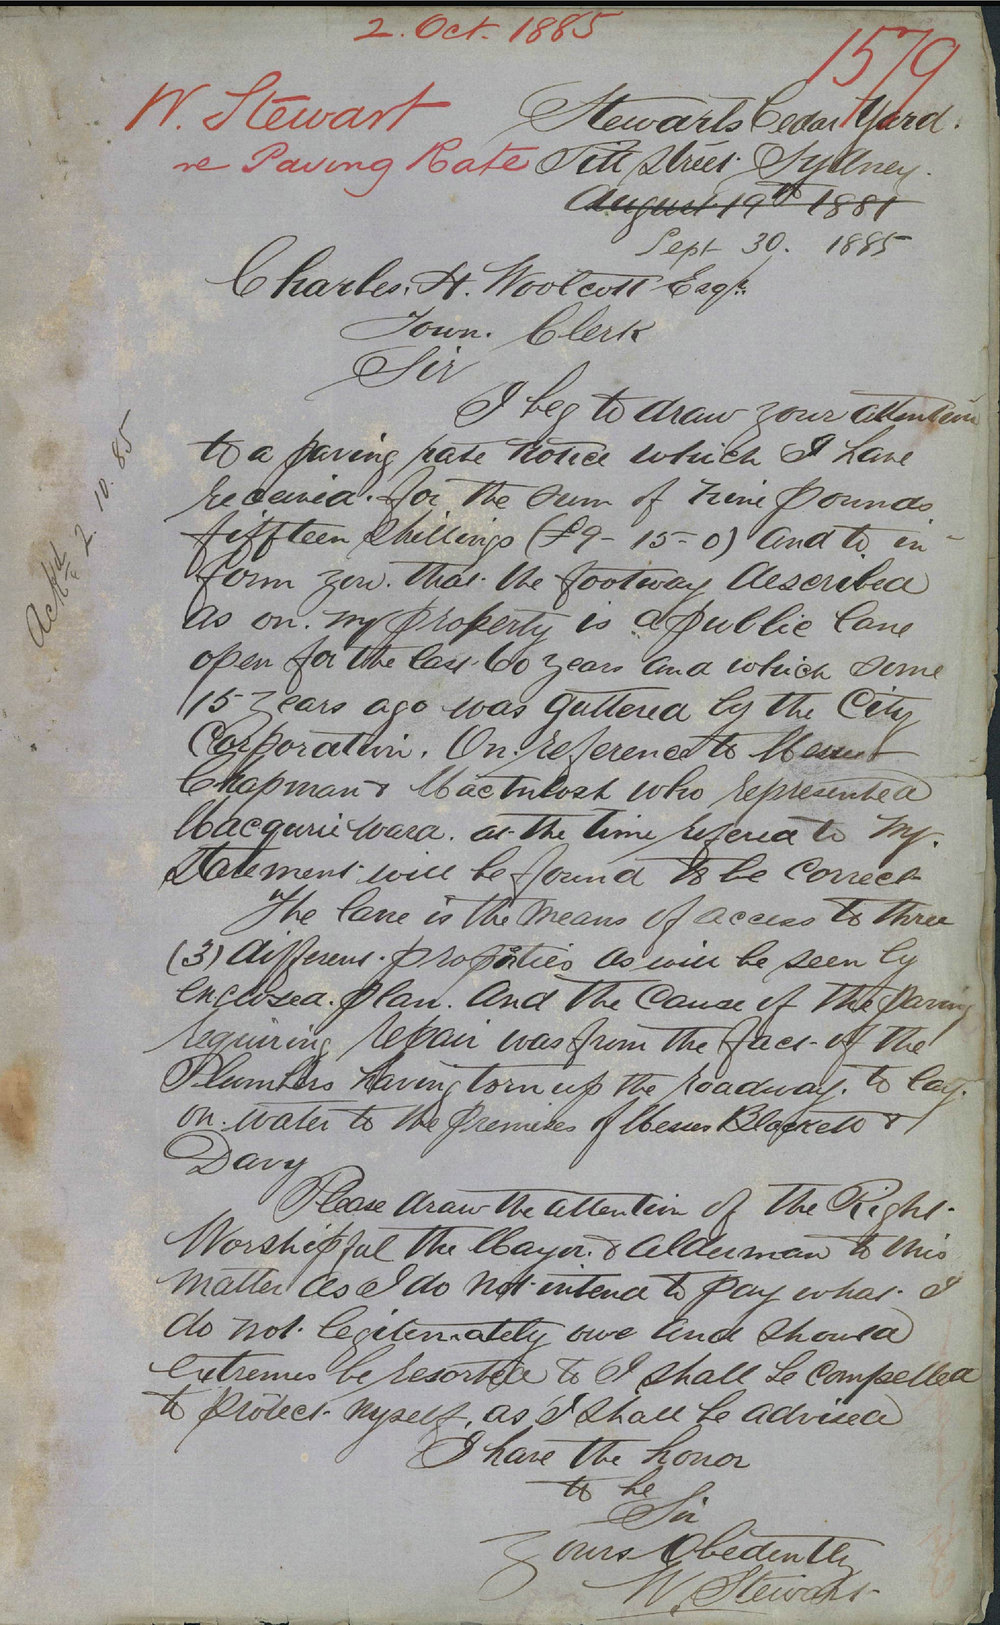 2. Oct. 1885
1579
W. Stewart
re Paving Rate
Stewarts Cedar Yard.
Pitt Street Sydney.
August 19th 1881
Sept 30. 1885
Charles. H. Woolcott Esqr.
Town. Clerk
Sir
I beg to draw your attention
to a paving rate notice which I have
received. for the sum of nine pounds
fiffteen shillings (£9-15-0) and to in-
form you. that the footway described
as on. my property is a public lane
open for the last 60 years and which some
15 years ago was guttered by the City
Corporation. On. reference to Messrs
Chapman & Mactntosh who represented
Macqurie ward. at the time refered to my.
statement will be found to be correct
The lane is the means of access to three
(3) different. properties as will be seen by
enclosed. plan. and the cause of the paving
requiring repair was from the fact of the
Plumbers having torn up the roadway. to lay.
on. water to the premises of Messrs Blackett &
Davy
Please draw the attention of the Right
Worshipful the Mayor. & Alderman to this
matter as I do not intend to pay what I
do not legitemately owe and should
extremes be resorted to I shall be compelled
to protect myself, as I shall be advised
I have the honor
to be
Sir
Yours Obedently
W. Stewart
Ackd 2. 10. 85